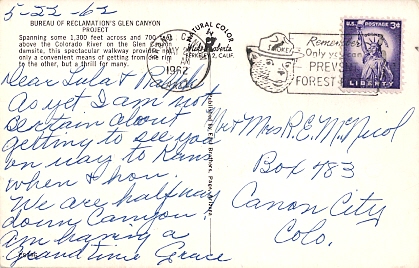 5-22-62
BUREAU OF RECLAMATION'S GLEN CANYON
PROJECT
Spanning some 1,300 feet across and 700 feet
above the Colorado River on the Glen Canyon
damsite, this spectacular walkway provides not
only a convenient means of getting from one rim
to the other, but a thrill for many.
Dear Lula &
As yet I am not
certain about
getting to see you
on way to Kans
when & how.
We are halfway
down Canyon,
am having a
grand time Grace
NATURAL COLOR
Mike Roberts
BERKELEY 2, CALIF.
Published by
MAY
AM
1962
SMOKEY
Remember
Only you can
PREVENT
FOREST
U.S. POSTAGE
3¢
LIBERTY
Mr & Mrs R.E. McNicol
Box 483
Canon City
Colo.